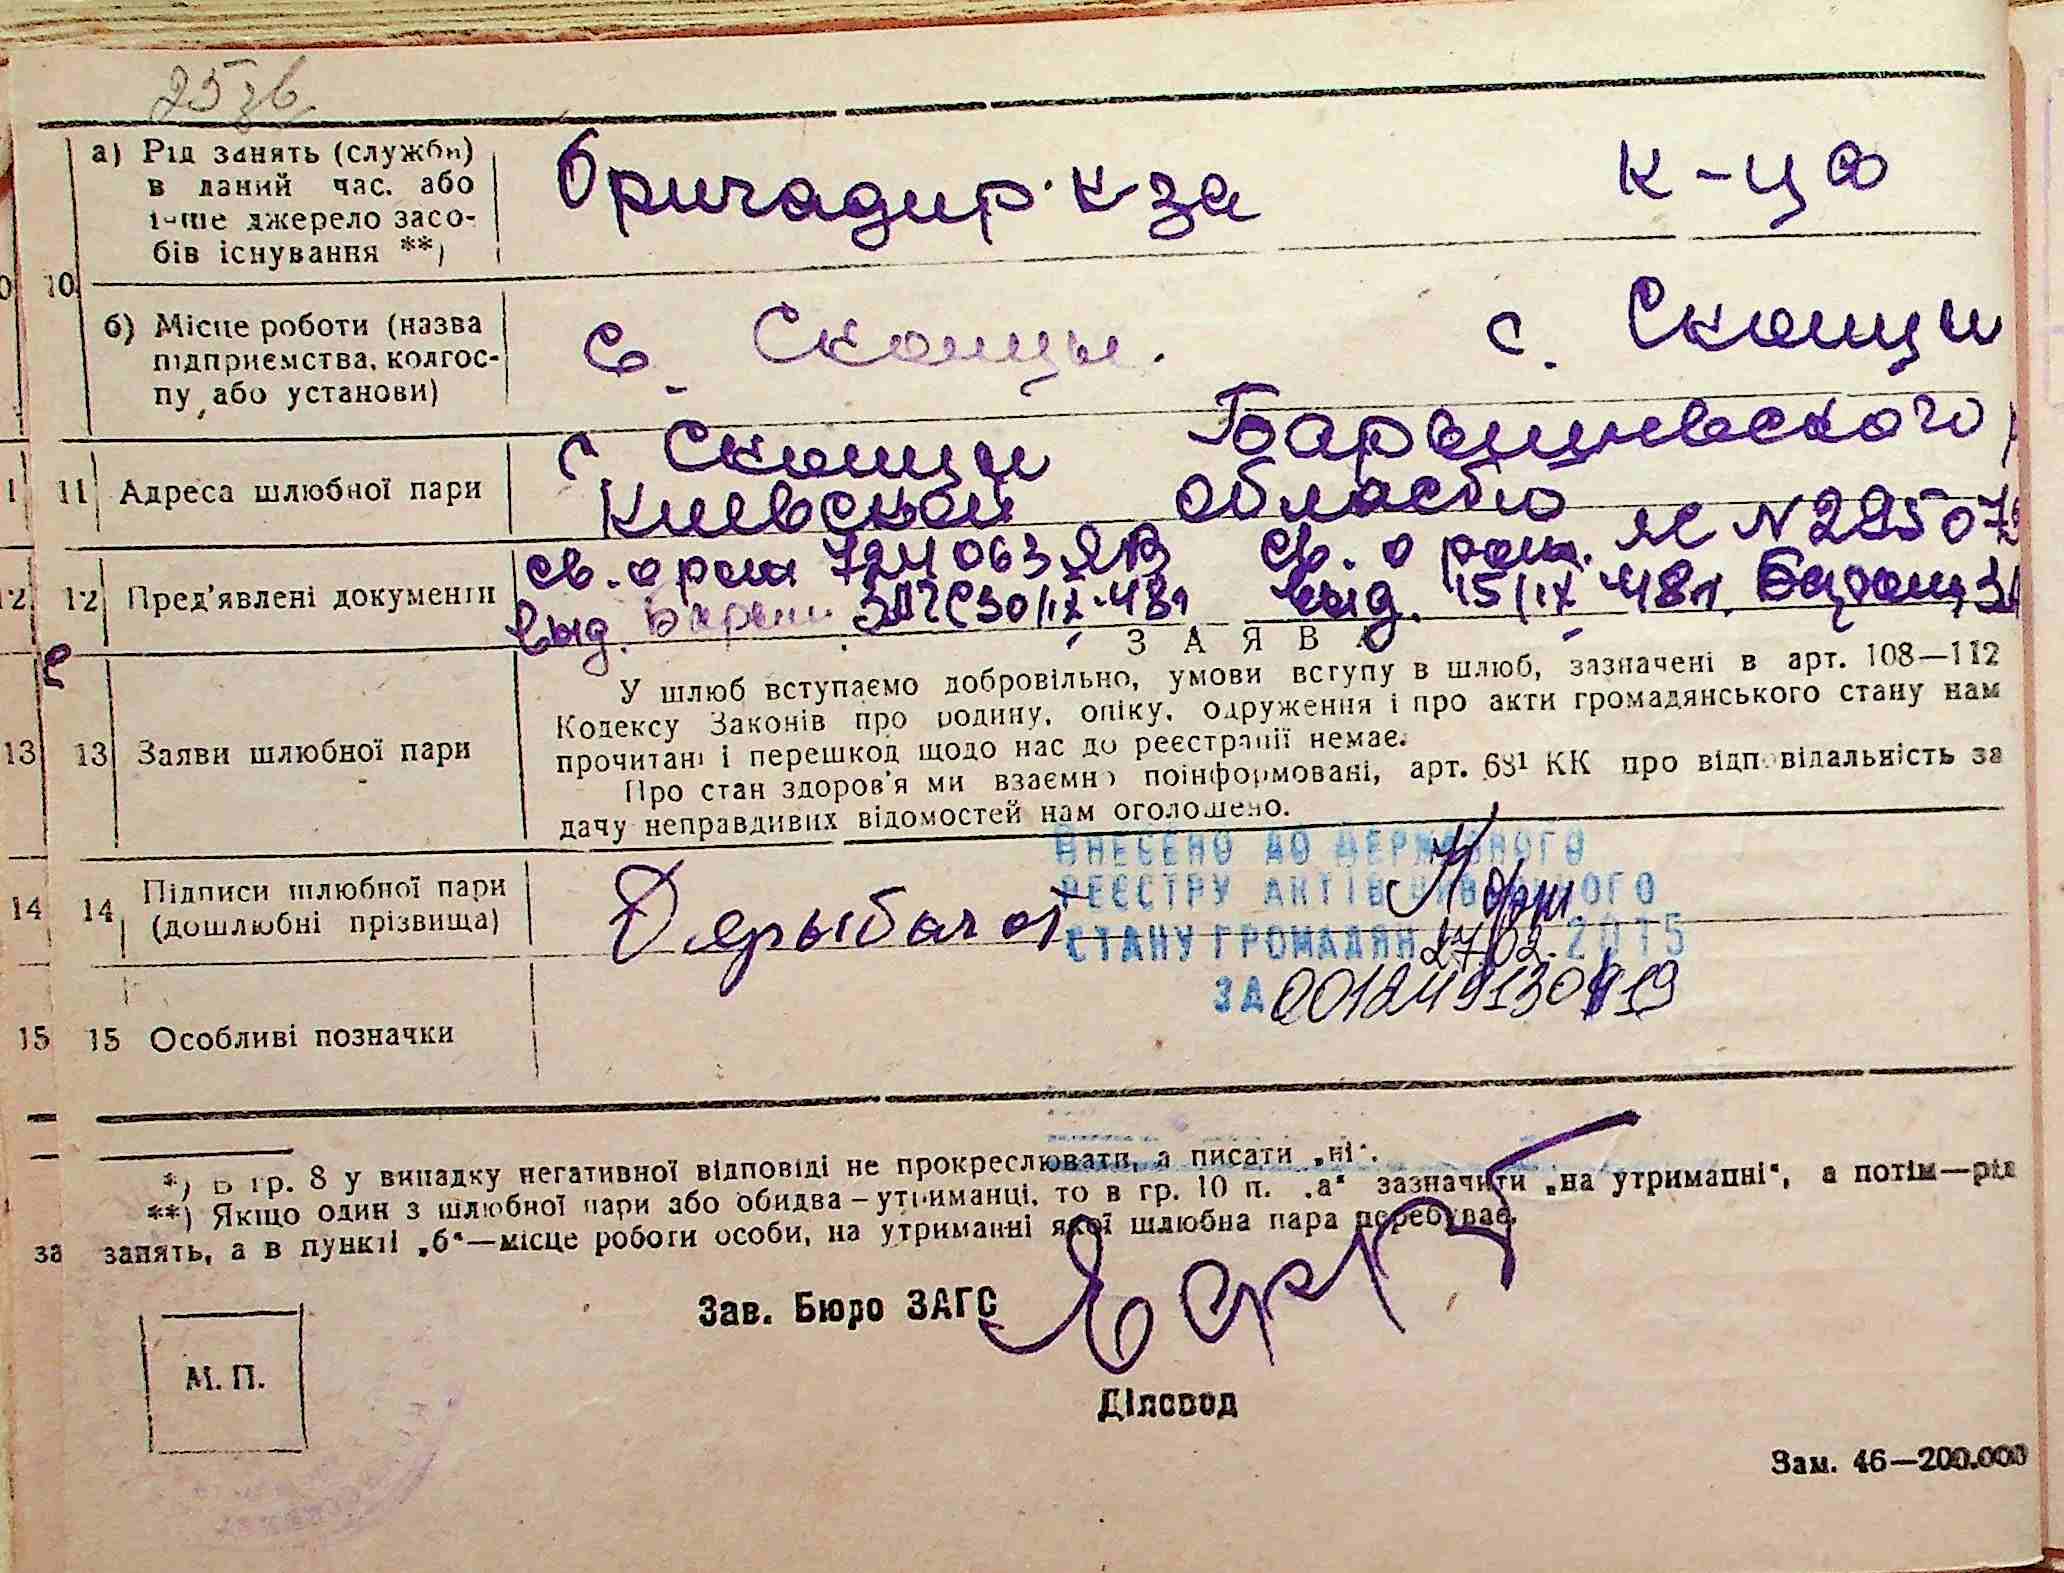 25 зв.
а) Рід занять (служби) в даний час, або інше джерело засобів існування **)
бригадир к-за
к-ца
10
б) Місце роботи (назва підприємства, колгоспу або установи)
с. Скопцы.
с. Скопци
11 Адреса шлюбної пари
с. Скопци Барышевского
Киевской области
12 Пред'явлені документи
св. о рож 724063 ЯВ
св. о рож. ЯС N 29507
выд. Барыш ЗАГС 30/IX-48г
выд. 15/IX 48г. Барыш
З А Я В А
13 Заяви шлюбної пари
У шлюб вступаємо добровільно, умови вступу в шлюб, зазначені в арт. 108—112
Кодексу Законів про родину, опіку, одруження і про акти громадянського стану нам
прочитані і перешкод щодо нас до реєстрації немає.
Про стан здоров'я ми взаємно поінформовані, арт. 68¹ КК про відповідальність за
дачу неправдивих відомостей нам оголошено.
ВНЕСЕНО ДО ДЕРЖАВНОГО
РЕЄСТРУ АКТІВ ЦИВІЛЬНОГО
СТАНУ ГРОМАДЯН 27.02.2015
ЗА 001249130419
14 Підписи шлюбної пари
(дошлюбні прізвища)
15 Особливі позначки
*) В гр. 8 у випадку негативної відповіді не прокреслювати, а писати „ні“.
**) Якщо один з шлюбної пари або обидва – утриманці, то в гр. 10 п. „а“ зазначити „на утриманні“, а потім—рід
занять, а в пункті „б“—місце роботи особи, на утриманні якої шлюбна пара перебуває.
Зав. Бюро ЗАГС
М. П.
Діловод
Зам. 46—200.000